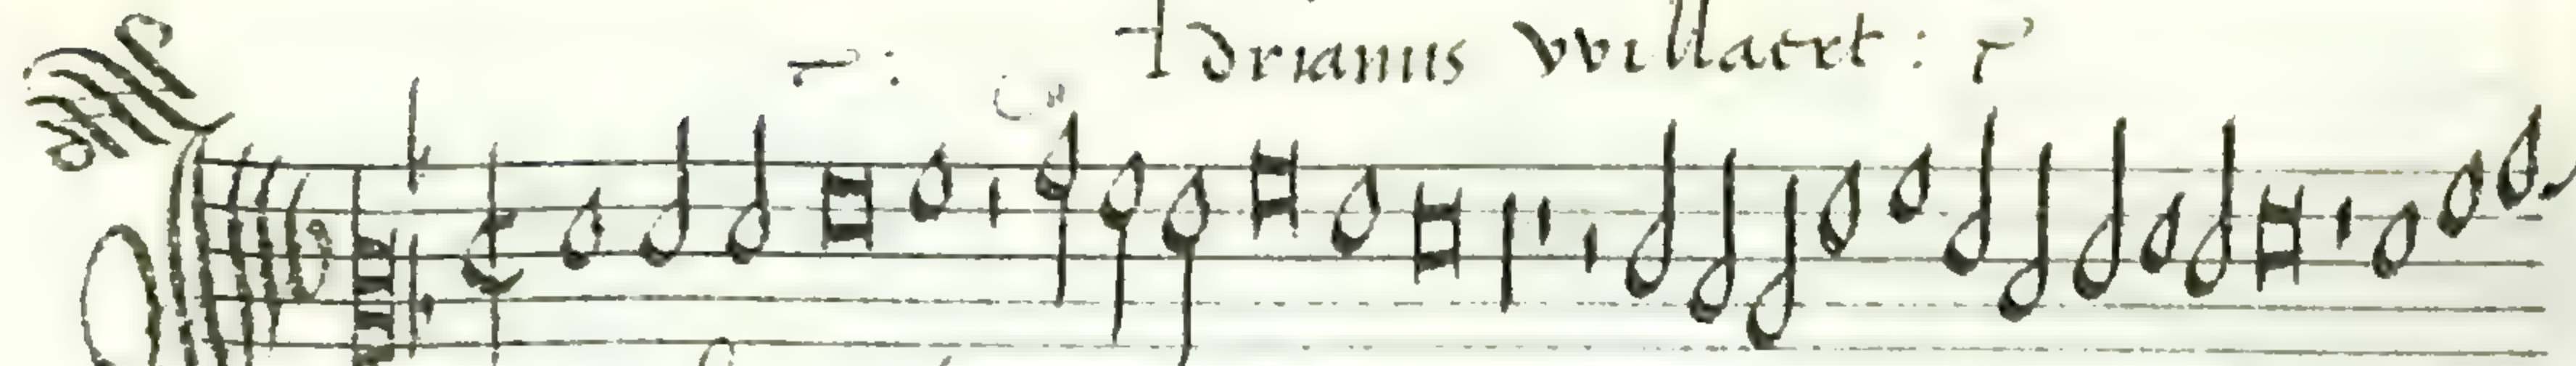 Adrianus vvillaert :